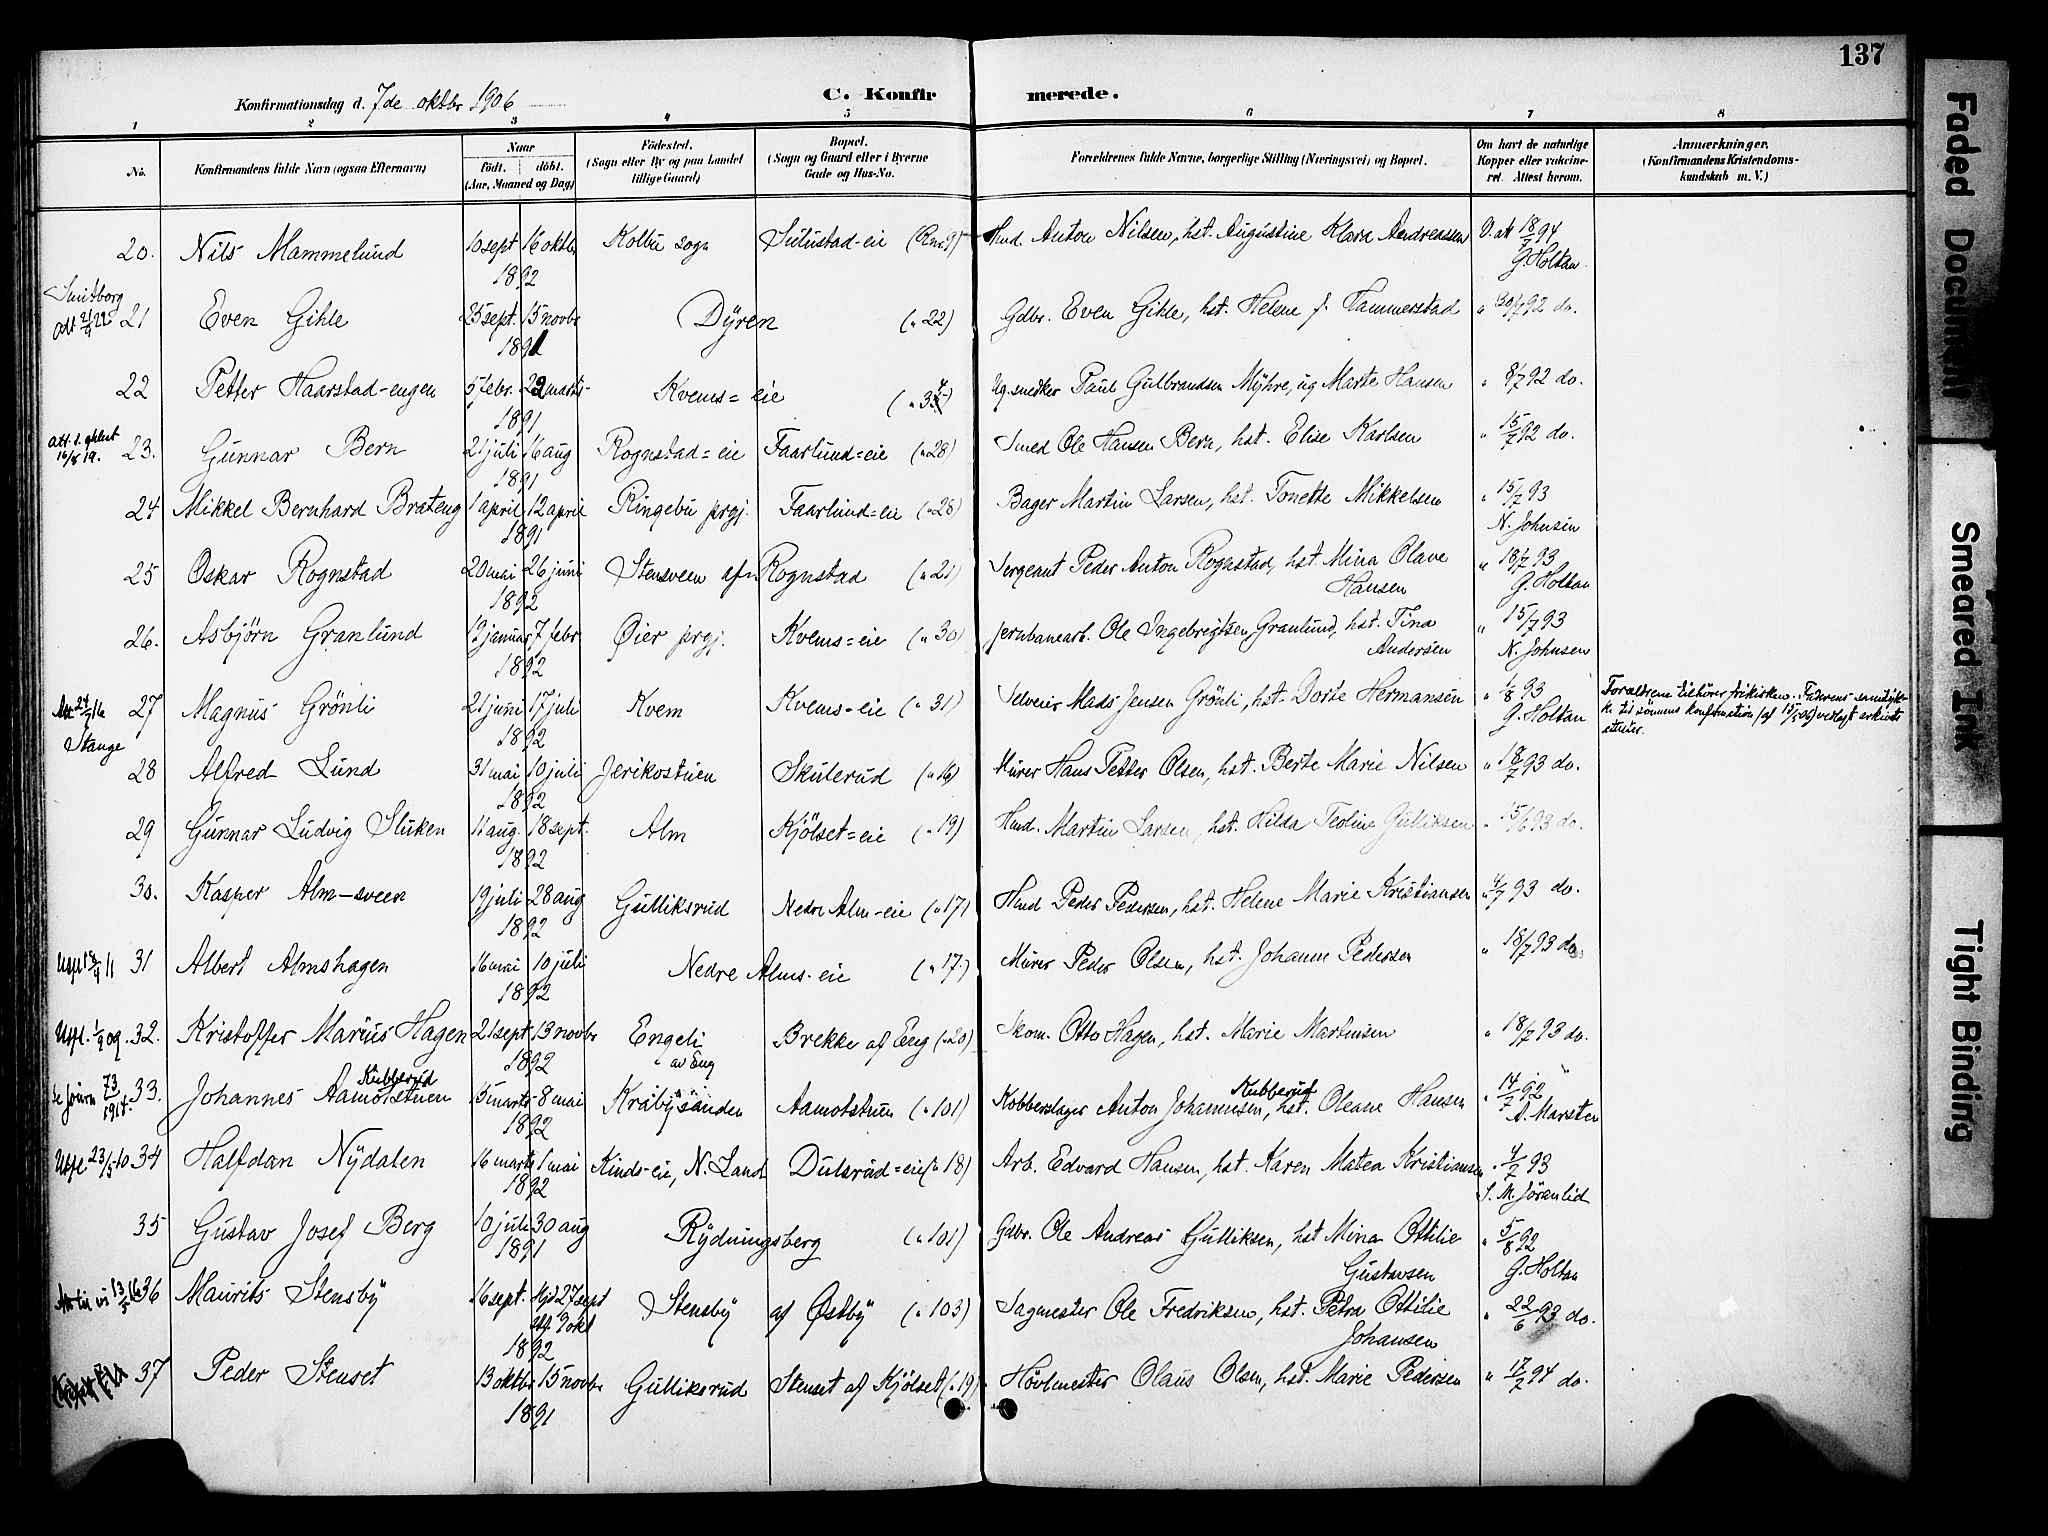 137
Konfirmationsdag d. 7de oktbr 1906
C. Konfirmerede.
1 2 3 4 5 6 7 8
No. Konfirmandens fulde Navn (ogsaa Efternavn) Naar Födt. döbt. (Aar, Maaned og Dag) Födested. (Sogn eller By og paa Landet tillige Gaard) Bopæl. (Sogn og Gaard eller i Byerne Gade og Hus-No. Forældrenes fulde Navne, borgerlige Stilling (Næringsvei) og Bopæl. Om havt de naturlige Kopper eller vakcineret. Attest herom. Anmærkninger. (Konfirmandens Kristendomskundskab m. V.)
20. Nils Mammelund 10 sept 16 oktbr 1892 Kolbu sogn Sulustad-eie ( 9) Hmd. Anton Nilsen, hst. Augustine Klara Andreassen V. att 18/7 94 G. Holtan
21 Even Gihle 25 sept. 15 novbr 1891 Dyren (" 22) Gdbr. Even Gihle, hst. Helene f. Hammerstad " 30/7 92 do.
22 Petter Haarstad-engen 5 febr. 22 marts 1891 Kvems=eie Ug. snedker Paul Gulbrandsen Myhre, ug Marte Hansen " 8/7 92 do.
23. Gunnar Bern 21 juli 16 aug 1891 Rognstad=eie Faarlund=eie (" 28) Smed Ole Hansen Bern, hst. Elise Karlsen " 15/7 92 do.
24 Mikkel Bernhard Brateng 1 april 12 april 1891 Ringebu prgj. Faarlund=eie (" 28) Bager Martin Larsen, hst. Tonette Mikkelsen " 15/7 93 N. Johnsen
25 Oskar Rognstad 20 mai 26 juni 1892 Stensveen af Rognstad (" 21) Sergeant Peder Anton Rognstad, hst. Mina Olave Hansen " 18/7 93 G. Holtan
26. Asbjörn Granlund 12 januar 7 febr. 1892 Øier prgj. Kvems=eie (" 30) Jernbanearb. Ole Ingebrigtsen Granlund, hst. Tina Andersen " 15/7 93 N. Johnsen
Stange 27 Magnus Grönli 21 juni 17 juli 1892 Kvem Kvems-eie (" 31) Selveier Mads Jensen Grönli, hst. Dorte Hermansen " 1/8 93 G. Holtan Forældrene tilhører frikirken. Faderens samtykke til sønnens konfirmation (af 15/ 06) vedlagt
28 Alfred Lund 31 mai 10 juli 1892 Jerikostuen Skulerud (" 16) Murer Hans Petter Olsen, hst. Berte Marie Nilsen " 18/7 93 do.
29 Gunnar Ludvig Sluken 11 aug. 18 sept. 1892 Alm Kjölset=eie (" 19) Hmd. Martin Larsen, hst. Hilda Teoline Gulliksen " 15/6 93 do.
30. Kasper Alm-sveen 19 juli 28 aug 1892 Gulliksrud Nedre Alm-eie (" 17) Hmd Peder Pedersen, hst. Helene Marie Kristiansen " 4/7 93 do.
31 Albert Almshagen 16 mai 10 juli 1892 Nedre Alms-eie (" 17.) Murer Peder Olsen, hst. Johanne Pedersen " 18/7 93 do
32. Kristoffer Marius Hagen 21 sept 13 novbr 1892 Engeli av Eng Brekke af Eng (" 20) Skom. Otto Hagen, hst. Marie Martinsen " 18/7 93 do.
33. Johannes Aamotstuen Kubberud 15 marts 8 mai 1892 Kråbysanden Aamotstuen (" 101) Kobberslager Anton Johannesen Kubberud, hst. Oleane Hansen " 14/7 92 A. Marsten
Utfl 23/5 10 34 Halfdan Nydalen 16 marts 1 mai 1892 Kinds-eie, N. Land Dulsrud=eie (" 18) Arb. Edvard Hansen, hst. Karen Matea Kristiansen " 4/7 93 S. M. Jöranlid
35 Gustav Josef Berg 10 juli 30 aug 1891 Rydningsberg (" 101) Gdbr. Ole Andreas Gulliksen, hst Mina Ottilie Gustavsen " 5/8 92 G. Holtan
36 Maurits Stensby 16 sept. hjd 27 sept stf. 9 okt 1892 Stensby af Østby (" 103) Sagmester Ole Fredriksen, hst. Petra Ottilie Johansen " 22/6 93 do.
37 Peder Stenset 13 oktbr 15 novbr 1891 Gulliksrud Stenset af Kjölset (" 19) Hövlmester Olaus Olsen, hst. Marie Pedersen " 17/7 94 do.
Faded Document
Smeared Ink
Tight Binding